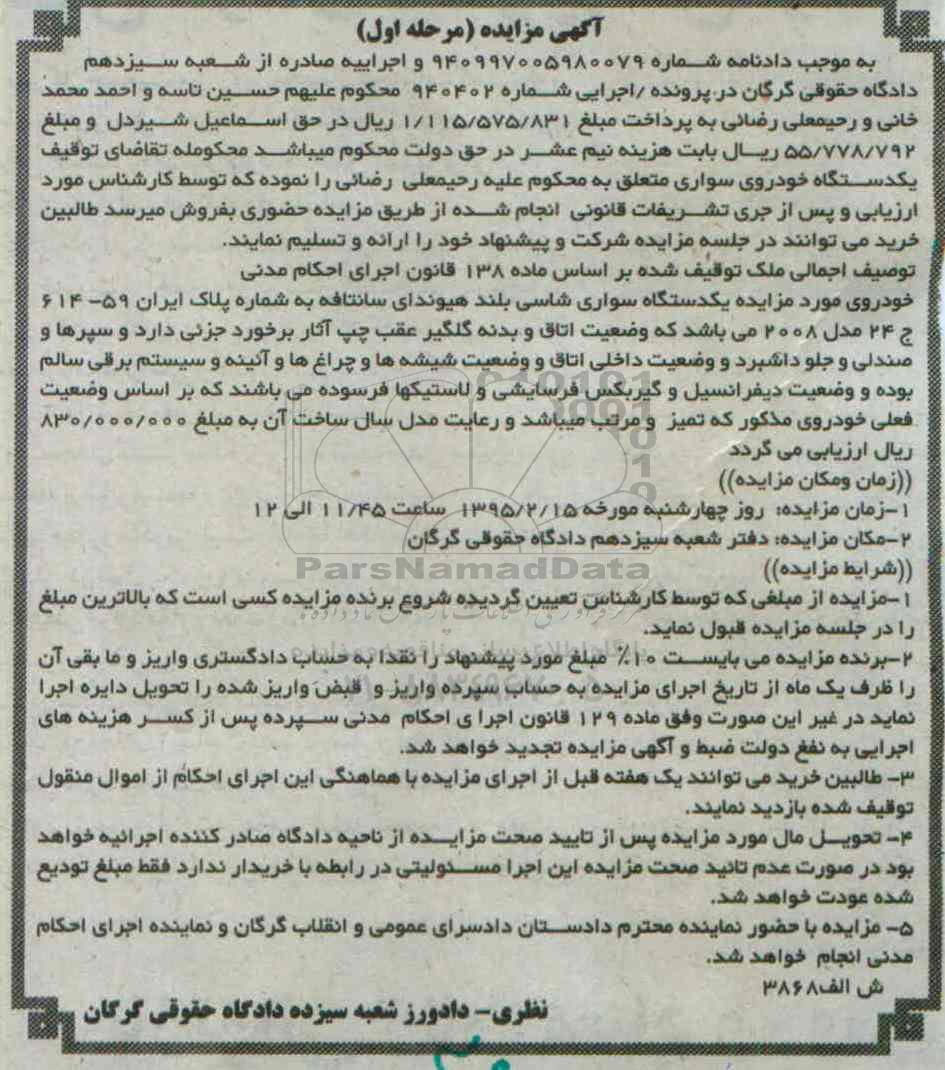 آگهی مزایده (مرحله اول)
به موجب دادنامه شماره ۹۴۰۹۹۷۰۰۵۹۸۰۰۷۹ و اجراییه صادره از شعبه سیزدهم
دادگاه حقوقی گرگان در پرونده /اجرایی شماره ۹۴۰۴۰۲ محکوم علیهم حسین تاسه و احمد محمد
خانی و رحیمعلی رضائی به پرداخت مبلغ ۱/۱۱۵/۵۷۵/۸۳۱ ریال در حق اسماعیل شیردل و مبلغ
۵۵/۷۷۸/۷۹۲ ریال بابت هزینه نیم عشر در حق دولت محکوم میباشد محکومله تقاضای توقیف
یکدستگاه خودروی سواری متعلق به محکوم علیه رحیمعلی رضائی را نموده که توسط کارشناس مورد
ارزیابی و پس از جری تشریفات قانونی انجام شده از طریق مزایده حضوری بفروش میرسد طالبین
خرید می توانند در جلسه مزایده شرکت و پیشنهاد خود را ارائه و تسلیم نمایند.
توصیف اجمالی ملک توقیف شده بر اساس ماده ۱۳۸ قانون اجرای احکام مدنی
خودروی مورد مزایده یکدستگاه سواری شاسی بلند هیوندای سانتافه به شماره پلاک ایران ۵۹- ۶۱۴
ج ۲۴ مدل ۲۰۰۸ می باشد که وضعیت اتاق و بدنه گلگیر عقب چپ آثار برخورد جزئی دارد و سپرها و
صندلی و جلو داشبرد و وضعیت داخلی اتاق و وضعیت شیشه ها و چراغ ها و آئینه و سیستم برقی سالم
بوده و وضعیت دیفرانسیل و گیربکس فرسایشی و لاستیکها فرسوده می باشند که بر اساس وضعیت
فعلی خودروی مذکور که تمیز و مرتب میباشد و رعایت مدل سال ساخت آن به مبلغ ۸۳۰/۰۰۰/۰۰۰
ریال ارزیابی می گردد
((زمان ومکان مزایده))
۱-زمان مزایده: روز چهارشنبه مورخه ۱۳۹۵/۲/۱۵ ساعت ۱۱/۴۵ الی ۱۲
۲-مکان مزایده: دفتر شعبه سیزدهم دادگاه حقوقی گرگان
ParsNamadData
((شرایط مزایده))
۱-مزایده از مبلغی که توسط کارشناس تعیین گردیده شروع برنده مزایده کسی است که بالاترین مبلغ
را در جلسه مزایده قبول نماید.
۲-برنده مزایده می بایست ۱۰٪ مبلغ مورد پیشنهاد را نقدا به حساب دادگستری واریز و ما بقی آن
را ظرف یک ماه از تاریخ اجرای مزایده به حساب سپرده واریز و قبض واریز شده را تحویل دایره اجرا
نماید در غیر این صورت وفق ماده ۱۲۹ قانون اجرا ی احکام مدنی سپرده پس از کسر هزینه های
اجرایی به نفع دولت ضبط و آگهی مزایده تجدید خواهد شد.
۳- طالبین خرید می توانند یک هفته قبل از اجرای مزایده با هماهنگی این اجرای احکام از اموال منقول
توقیف شده بازدید نمایند.
۴- تحویل مال مورد مزایده پس از تایید صحت مزایده از ناحیه دادگاه صادر کننده اجرائیه خواهد
بود در صورت عدم تائید صحت مزایده این اجرا مسئولیتی در رابطه با خریدار ندارد فقط مبلغ تودیع
شده عودت خواهد شد.
۵- مزایده با حضور نماینده محترم دادستان دادسرای عمومی و انقلاب گرگان و نماینده اجرای احکام
مدنی انجام خواهد شد.
ش الف۳۸۶۸
نظری- دادورز شعبه سیزده دادگاه حقوقی گرگان